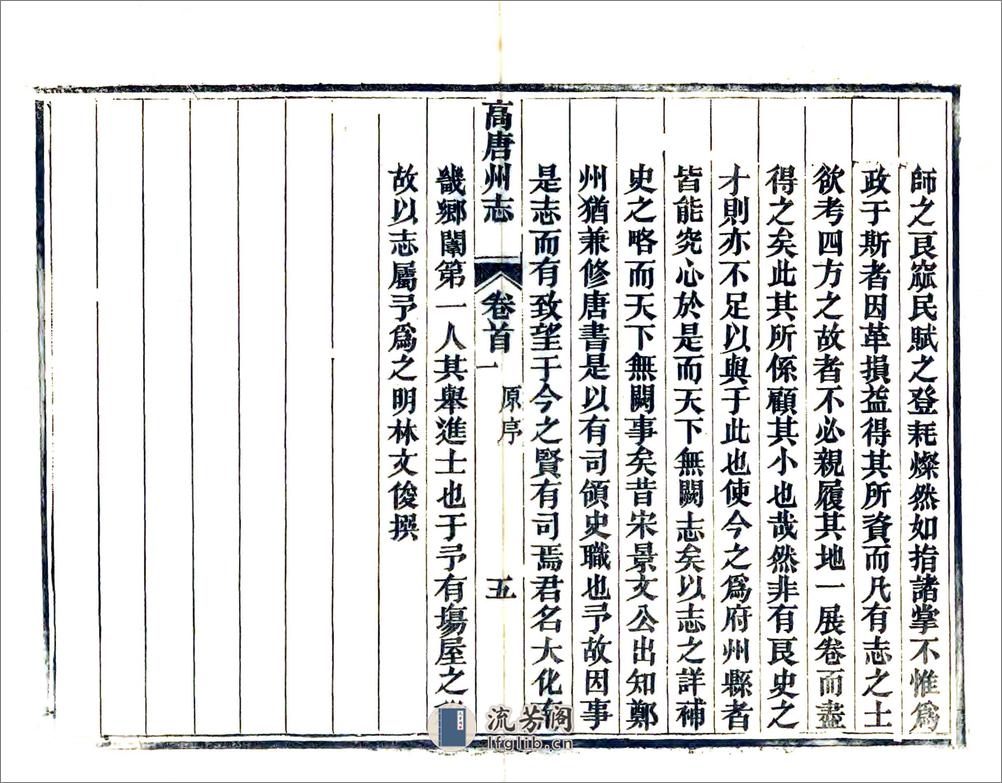 師之良窳民賦之登耗燦然如指諸掌不惟為
政于斯者因革損益得其所資而凡有志之士
欲考四方之故者不必親履其地一展卷而盡
得之矣此其所係顧其小也哉然非有良史之
才則亦不足以與于此也使今之為府州縣者
皆能究心於是而天下無闕志矣以志之詳補
史之略而天下無闕事矣昔宋景文公出知鄭
州猶兼修唐書是以有司領史職也予故因事
是志而有致望于今之賢有司焉君名大化
高唐州志
卷首一
原序
五
畿鄉闈第一人其舉進士也于予有場屋之
故以志屬予為之明林文俊撰
流芳阁
lfglib.cn